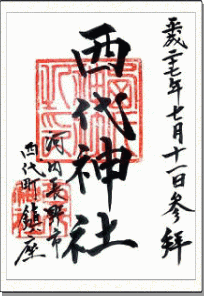 平成二十七年七月十一日参拝
西代神社
河内長野市
西代町鎮座